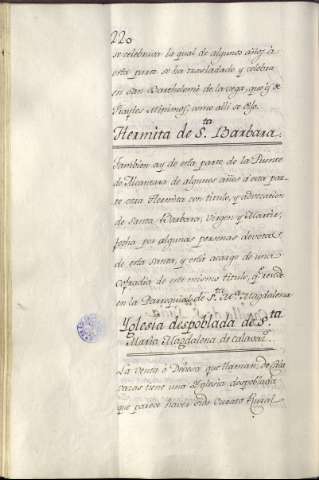 220
se celebraua la qual de algunos años a
esta parte se ha trasladado y celebra
en San Bartholomè de la vega, que es de
Frayles Minimos, como alli se dijo.
Hermita de S.ta Barbara.
Tambien ay de esta parte de la Puente
de Alcantara de algunos años a esta par-
te otra Hermita con titulo, y aduocacion
de Santa Barbara, Virgen y Martir,
fecha por algunas personas deuotas
de esta Santa, y està a cargo de una
Cofradia de este mismo titulo, q.e reside
en la Parroquial de S.ta M.a Magdalena
Yglesia despoblada de S.ta
Maria Magdalena de Calavazas.
La Venta ò Dehesa que llaman de Cala
vazas tiene una Yglesia despoblada
que parece haver sido Curato Rural